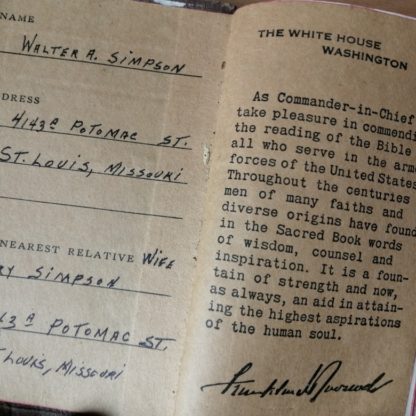 NAME
WALTER A. SIMPSON
DDRESS
4143a POTOMAC ST.
ST. LOUIS, MISSOURI
NEAREST RELATIVE WIFE
RY SIMPSON
43a POTOMAC ST.
T. LOUIS, MISSOURI
THE WHITE HOUSE
WASHINGTON
As Commander-in-Chief
take pleasure in commendin
the reading of the Bible
all who serve in the arme
forces of the United States
Throughout the centuries
men of many faiths and
diverse origins have found
in the Sacred Book words
of wisdom, counsel and
inspiration. It is a foun-
tain of strength and now,
as always, an aid in attain-
ing the highest aspirations
of the human soul.
Franklin D Roosevelt